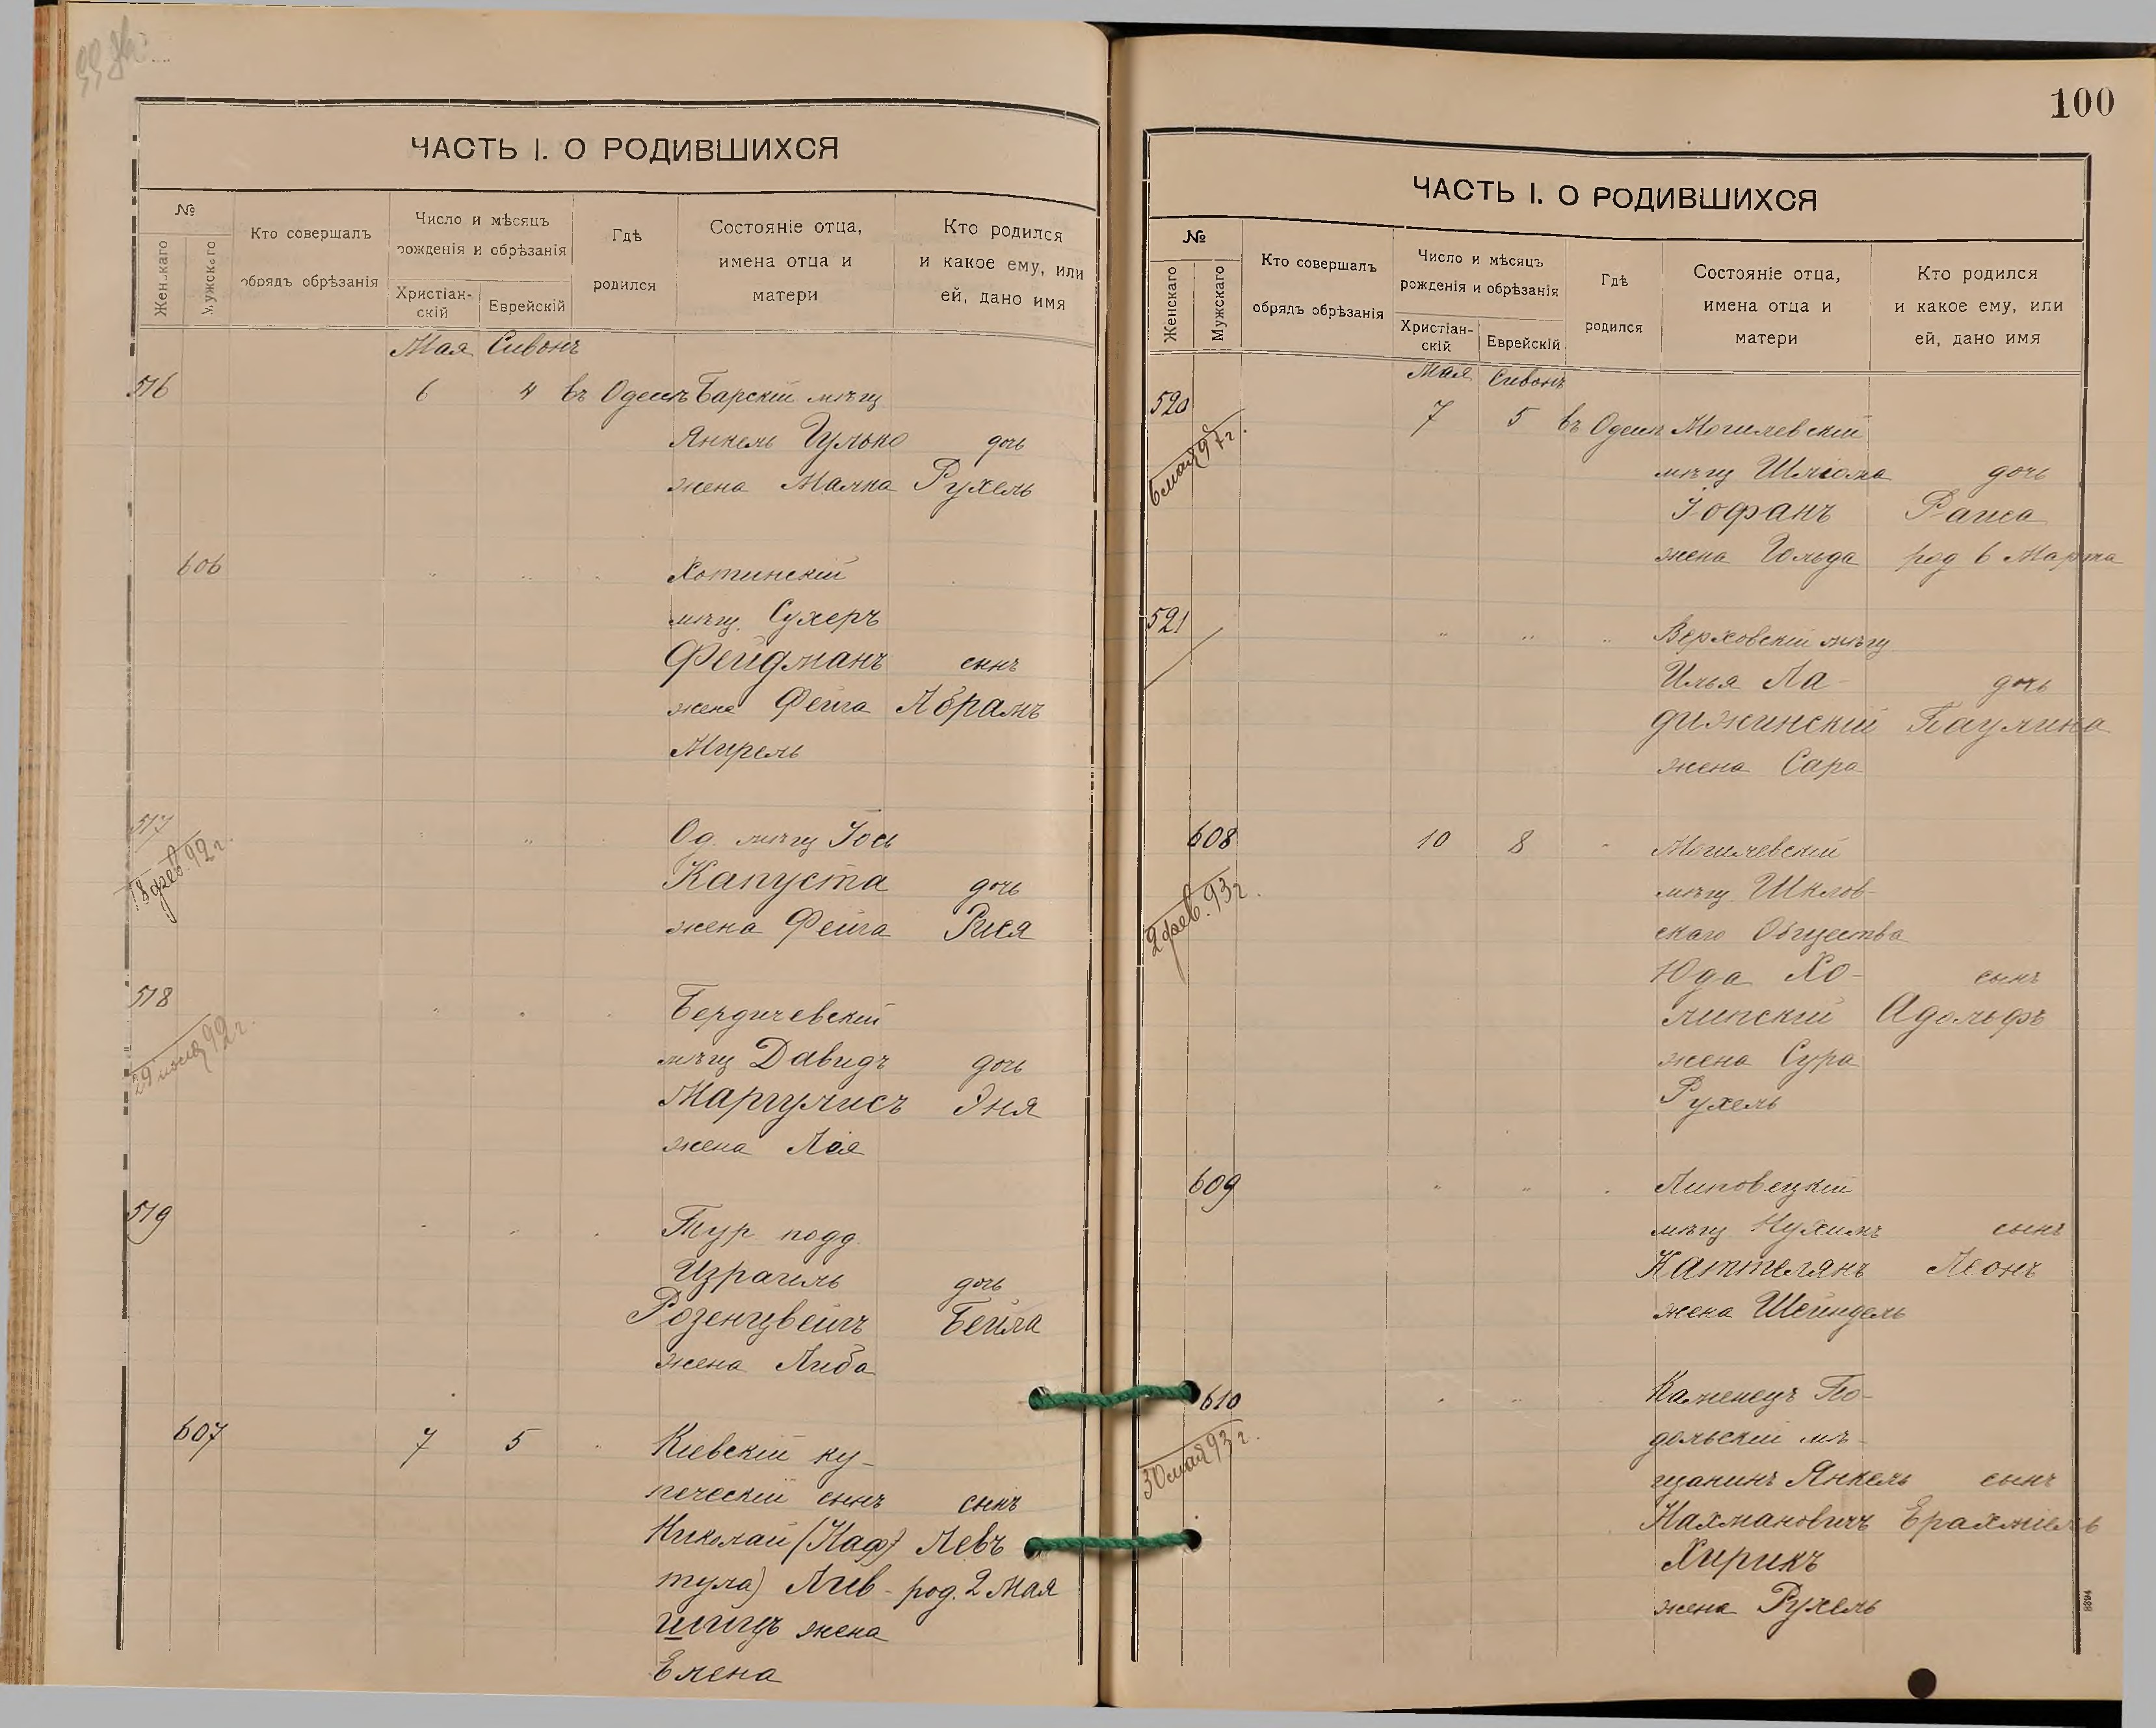 ЧАСТЬ I. О РОДИВШИХСЯ
№
Женскаго
Мужскаго
Кто совершалъ
обрядъ обрѣзанія
Число и мѣсяцъ
рожденія и обрѣзанія
Христіан-
скій
Еврейскій
Гдѣ
родился
Состояніе отца,
имена отца и
матери
Кто родился
и какое ему, или
ей, дано имя
Мая Сивонъ
516 6 4 въ Одессѣ Барскій мѣщ
Янкель Гулько дочь
жена Малка Рухель
606 " " " Хотинскій
мѣщ. Сухеръ
Фейдманъ сынъ
жена Фейга Абрамъ
Мирель
517 " " " Од. мѣщ Іось
18 фев. 92 г.
Капуста дочь
жена Фейга Рися
518 " " " Бердичевскій
29 іюня 92 г.
мѣщ Давидъ дочь
Маргулисъ Эня
жена Лея
519 " " " Тур подд.
Израиль дочь
Розенцвейгъ Бейла
жена Либа
607 7 5 " Кіевскій ку-
печескій сынъ сынъ
Николай (Наф) Левъ
тула) Лив- род. 2 Мая
шицъ жена
Елена
100
ЧАСТЬ I. О РОДИВШИХСЯ
№
Женскаго
Мужскаго
Кто совершалъ
обрядъ обрѣзанія
Число и мѣсяцъ
рожденія и обрѣзанія
Христіан-
скій
Еврейскій
Гдѣ
родился
Состояніе отца,
имена отца и
матери
Кто родился
и какое ему, или
ей, дано имя
Мая Сивонъ
520 7 5 въ Одессѣ Могилевскій
6 мая 97 г.
мѣщ Шліома дочь
Іофанъ Раиса
жена Гольда род 6 Марта
521 " " " Верховскій мѣщ
Илья Ла- дочь
дижинскій Паулина
жена Сара
608 10 8 " Могилевскій
2 фев. 93 г.
мѣщ Шклов-
скаго Общества
Юда Хо- сынъ
липскій Адольфъ
жена Сура
Рухель
609 " " " Липовецкій
мѣщ Нухимъ сынъ
Каттелянъ Леонъ
жена Шейндель
610 " " " Каменецъ По-
30 мая 93 г.
дольскій мѣ-
щанинъ Янкель сынъ
Нахмановичъ Ерахміель
Хирикъ
жена Рухель